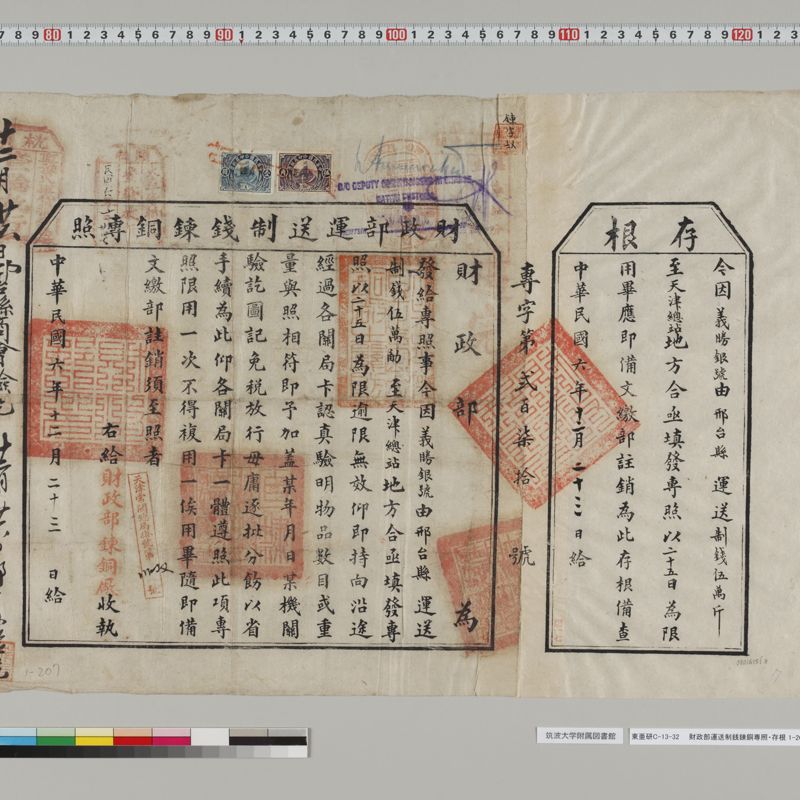 存根
今因義勝銀號由邢台縣運送制錢伍萬斤
至天津總站地方合亟填發專照以二十五日為限
用畢應即備文繳部註銷為此存根備查
中華民國六年十二月二十三日給
專字第貳百柒拾號
財政部運送制錢鍊銅專照
財政部為
發給專照事今因義勝銀號由邢台縣運送
制錢伍萬觔至天津總站地方合亟填發專
照以二十五日為限逾限無效仰即持向沿途
經過各關局卡認真驗明物品數目或重
量與照相符即予加蓋某年月日某機關
驗訖圖記免稅放行毋庸逐批分飭以省
手續為此仰各關局卡一體遵照此項專
照限用一次不得複用一俟用畢隨即備
文繳部註銷須至照者
右給財政部鍊銅廠收執
中華民國六年十二月二十三日給
1-207
筑波大学附属図書館
東亜研C-13-32 財政部運送制銭錬銅専照・存根 1-20